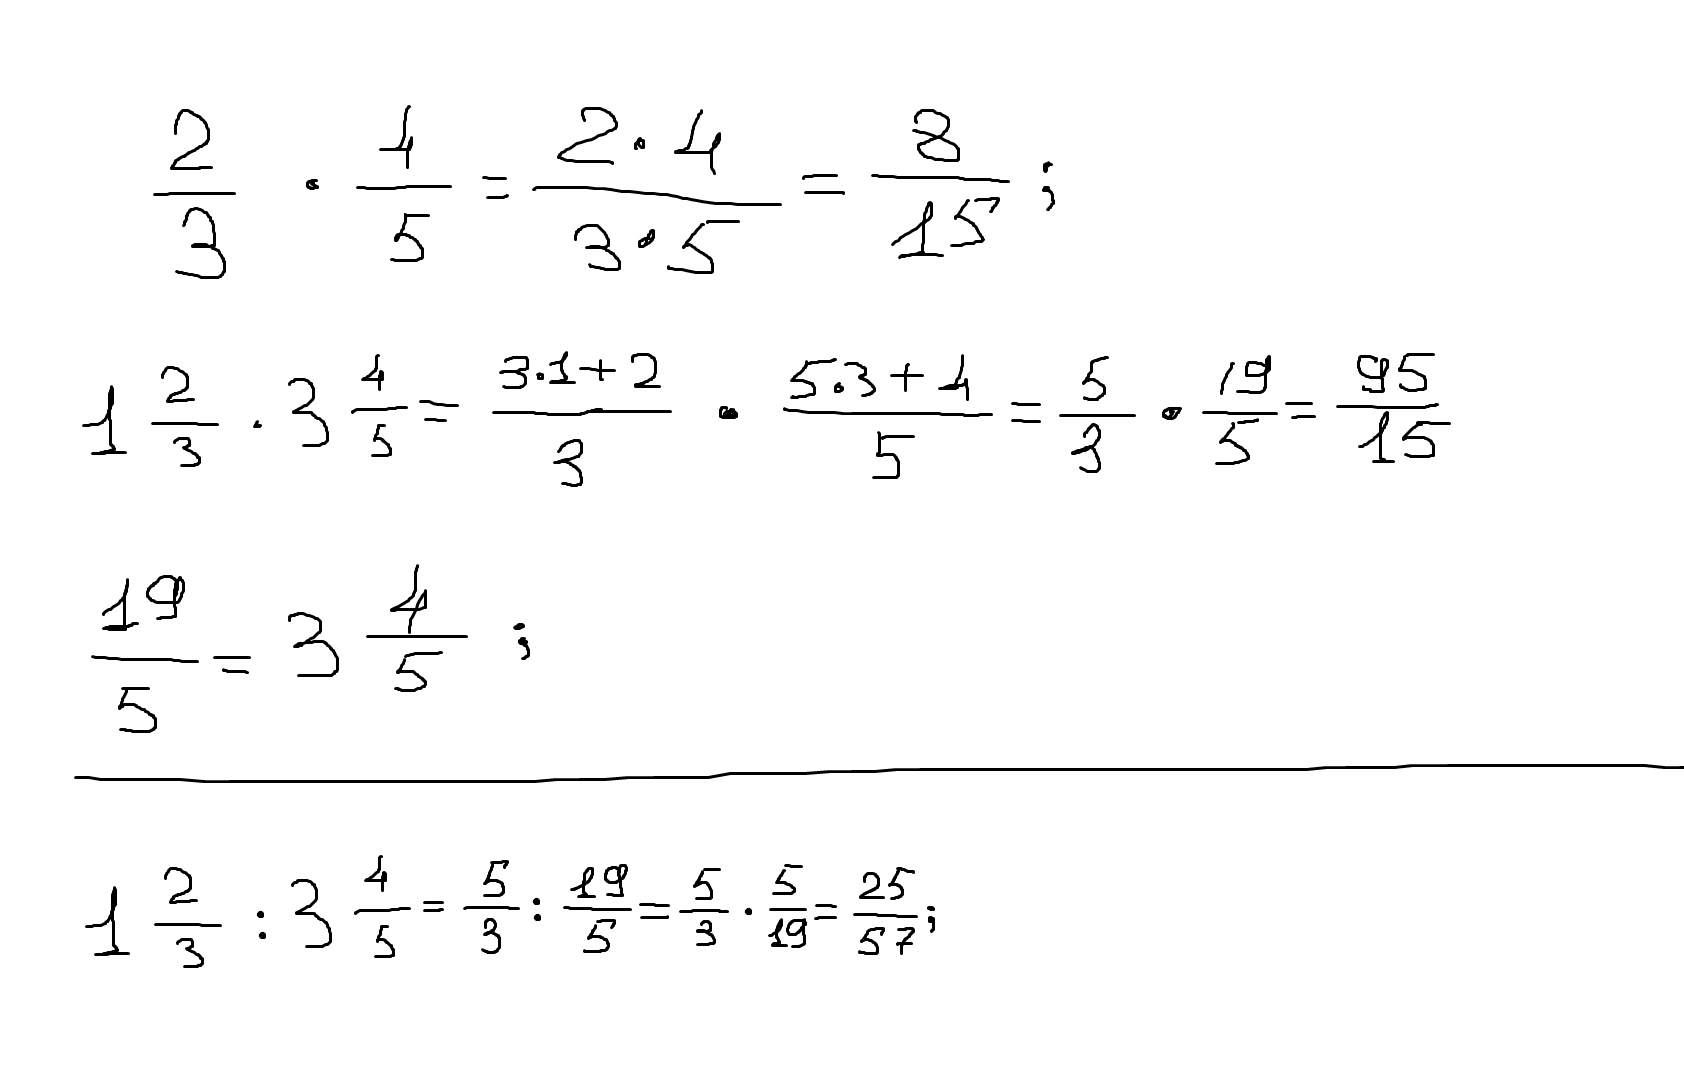 2/3 · 4/5 = 2·4/3·5 = 8/15 ;
1 2/3 · 3 4/5 = 3·1+2/3 · 5·3+4/5 = 5/3 · 19/5 = 95/15
19/5 = 3 4/5 ;
1 2/3 : 3 4/5 = 5/3 : 19/5 = 5/3 · 5/19 = 25/57 ;